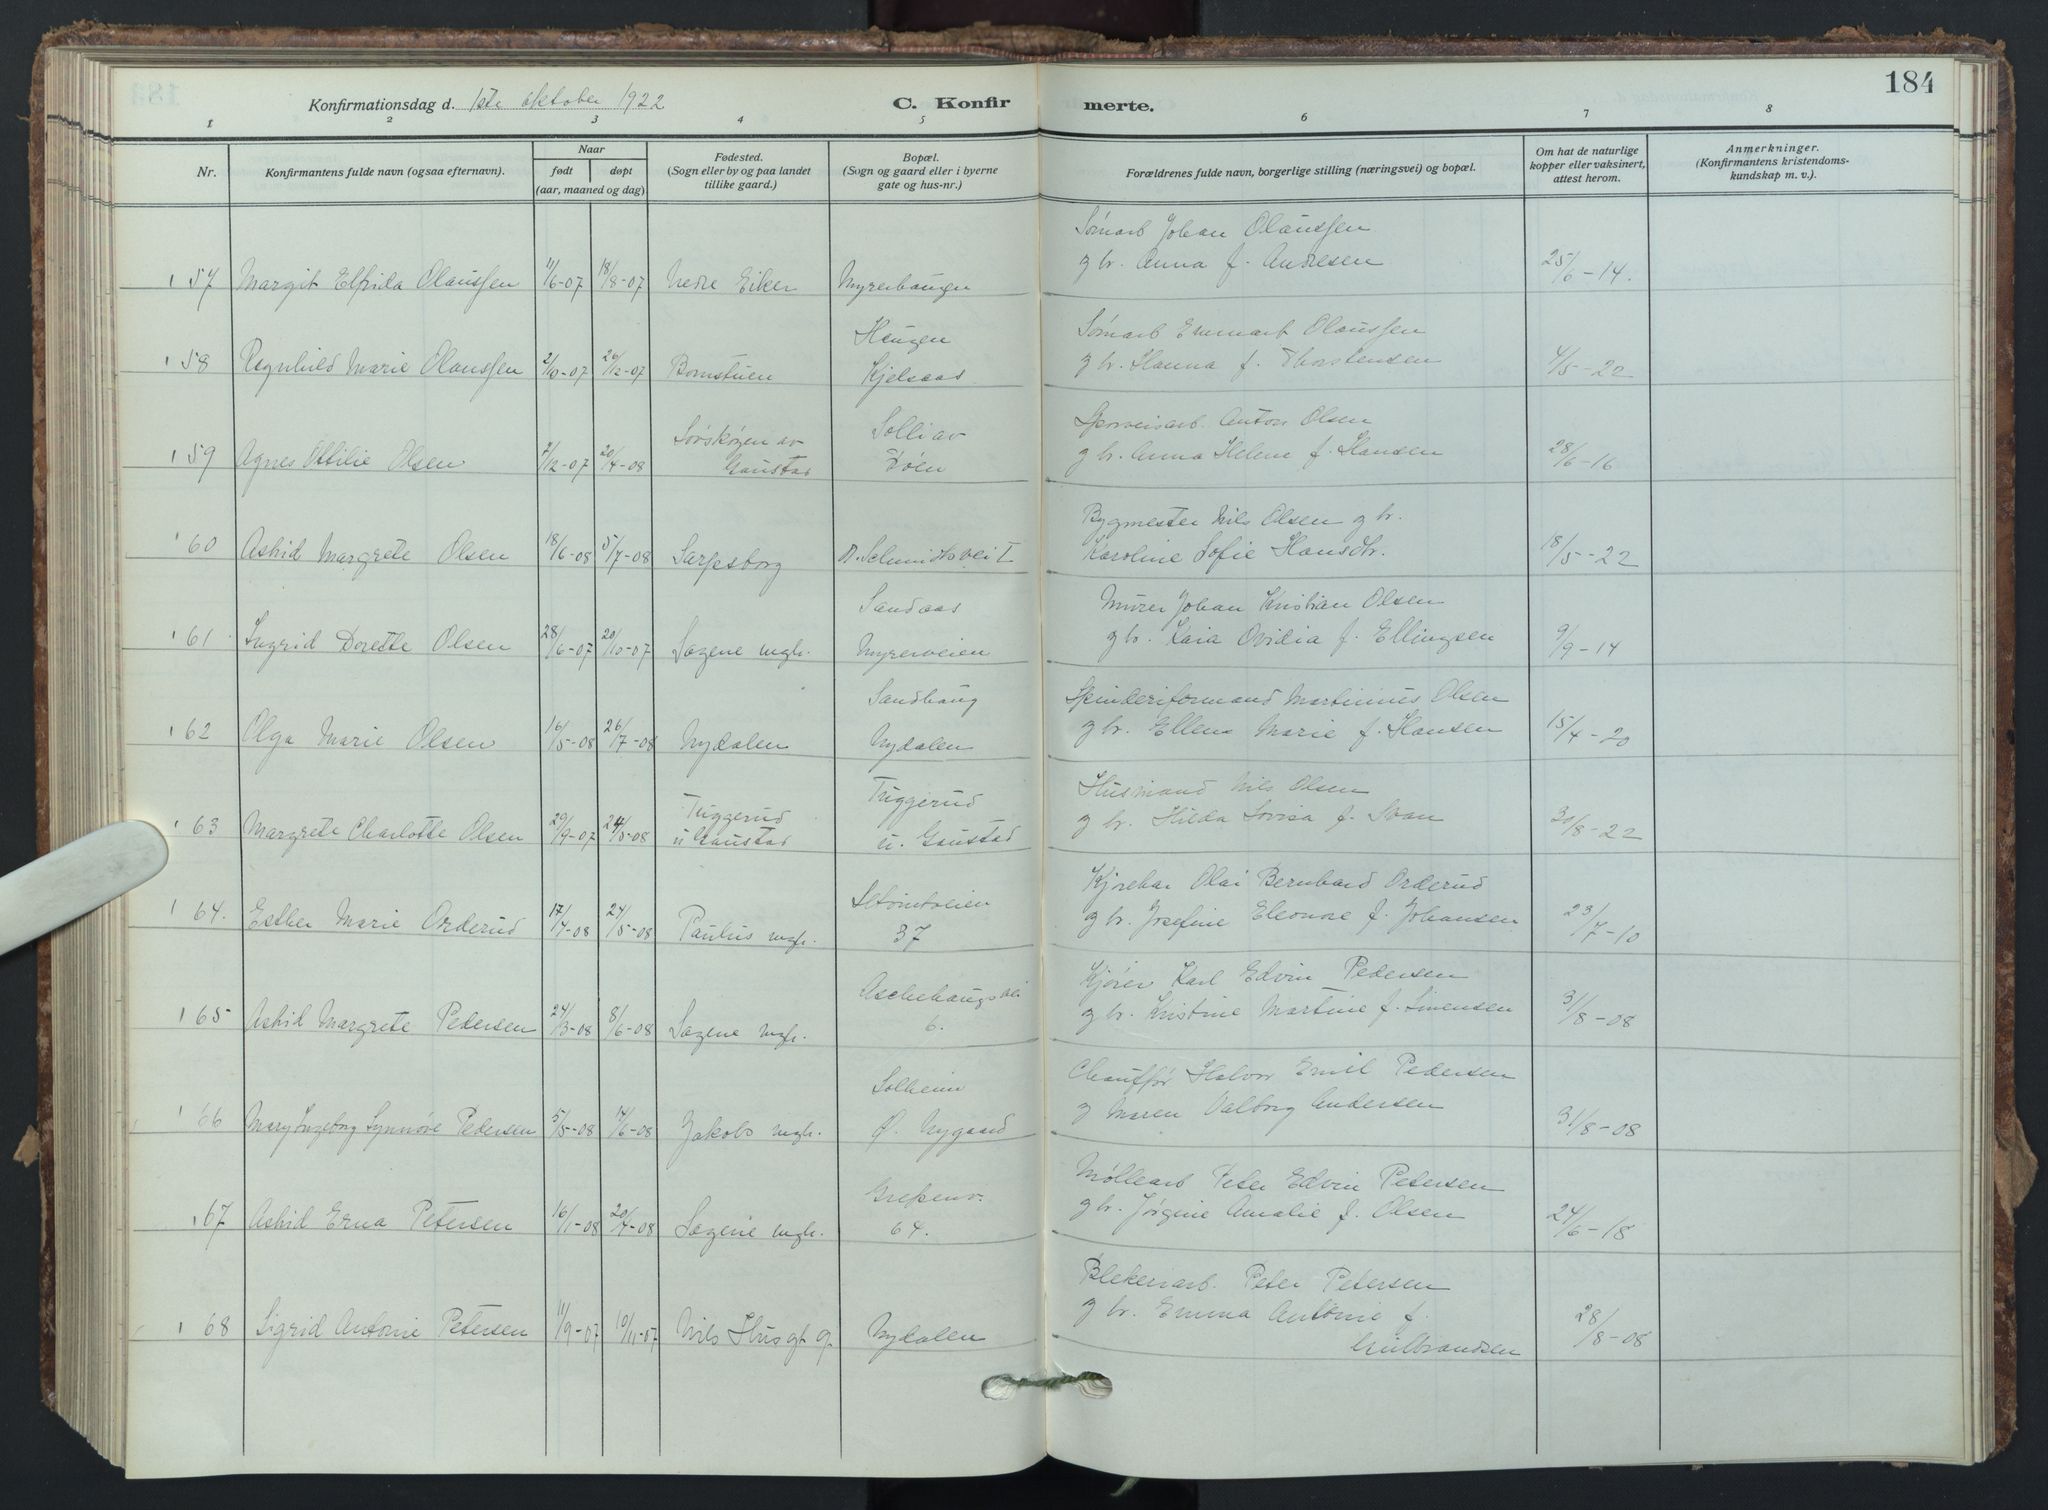 184
Konfirmationsdag d. 1ste oktober 1922 C. Konfirmerte.
1 2 3 4 5 6 7 8
Nr. Konfirmantens fulde navn (ogsaa efternavn). Naar født døpt (aar, maaned og dag) Fødested. (Sogn eller by og paa landet tillike gaard.) Bopæl. (Sogn og gaard eller i byerne gate og hus-nr.) Forældrenes fulde navn, borgerlige stilling (næringsvei) og bopæl. Om hat de naturlige kopper eller vaksinert, attest herom. Anmerkninger. (Konfirmantens kristendomskundskap m. v.).
Johan Olaussen
57 Margit Elfrida Olaussen 11/6-07 18/8-07 Nedre Eiker Myrerhaugen g hr. Anna f. Andresen 25/6-14.
Haugen Enevart Olaussen
58 Ragnhild Marie Olaussen 2/10-07 26/12-07 Bomstuen Kjelsaas g hr. Hanna f. Thorstensen 4/5-22
Sørskogen av Solli av Sporveisarb. Anton Olsen
59 Agnes Ottilie Olsen 7/12-07 20/4-08 Gaustad Døen g hr. Anna Helene f. Hansen 28/6-16
Bygmester Nils Olsen g hr.
60 Astrid Margrete Olsen 18/6-08 5/7-08 Sarpsborg D. Schmidts vei I Karoline Sofie Hansdtr. 18/5-22
Sandaas Murer Johan Kristian Olsen
61 Ingrid Dorette Olsen 28/6-07 20/10-07 Sagene mgh. Myrerveien g hr. Kaia Ovidia f. Ellingsen 9/9-14
Sandhaug Spinderiformand Martinius Olsen
62 Olga Marie Olsen 16/5-08 26/7-08 Nydalen Nydalen g hr. Ellen Marie f. Hansen 15/4-20
Tuggerud Tuggerud Husmand Nils Olsen
63 Margrete Charlotte Olsen 29/9-07 24/5-08 u Gaustad u. Gaustad g hr. Hilda Lovisa f. Svan 30/8-22
Strømsveien Olai Bernhard Orderud
64. Esther Marie Orderud 17/4-08 24/5-08 Paulus mgh. 37 g hr. Josefine Eleonore f. Johansen 23/7-10
Aschehougs vei Kjører Karl Edvin Pedersen
65 Astrid Margrete Pedersen 24/3-08 8/6-08 Sagene mgh. 6. g hr. Kristine Martine f. Simensen 31/8-08
Solheim Chauffør Halvor Emil Pedersen
66 Mary Ingeborg Synnøve Pedersen 5/5-08 14/6-08 Jakobs mgh. Ø. Nygaard g Maren Valborg Andersen 31/8-08
Grefsenv. Møllearb Peter Edvin Petersen
67 Astrid Erna Petersen 16/1-08 20/4-08 Sagene mgh. 64. g hr. Jørgine Amalie f. Olsen 24/6-18
Blekeriarb. Peter Petersen
g hr. Emma Antonie f.
68 Sigrid Antonie Petersen 11/9-07 10/11-07 Nils Hus gt 9 Nydalen Gulbrandsen 28/8-08